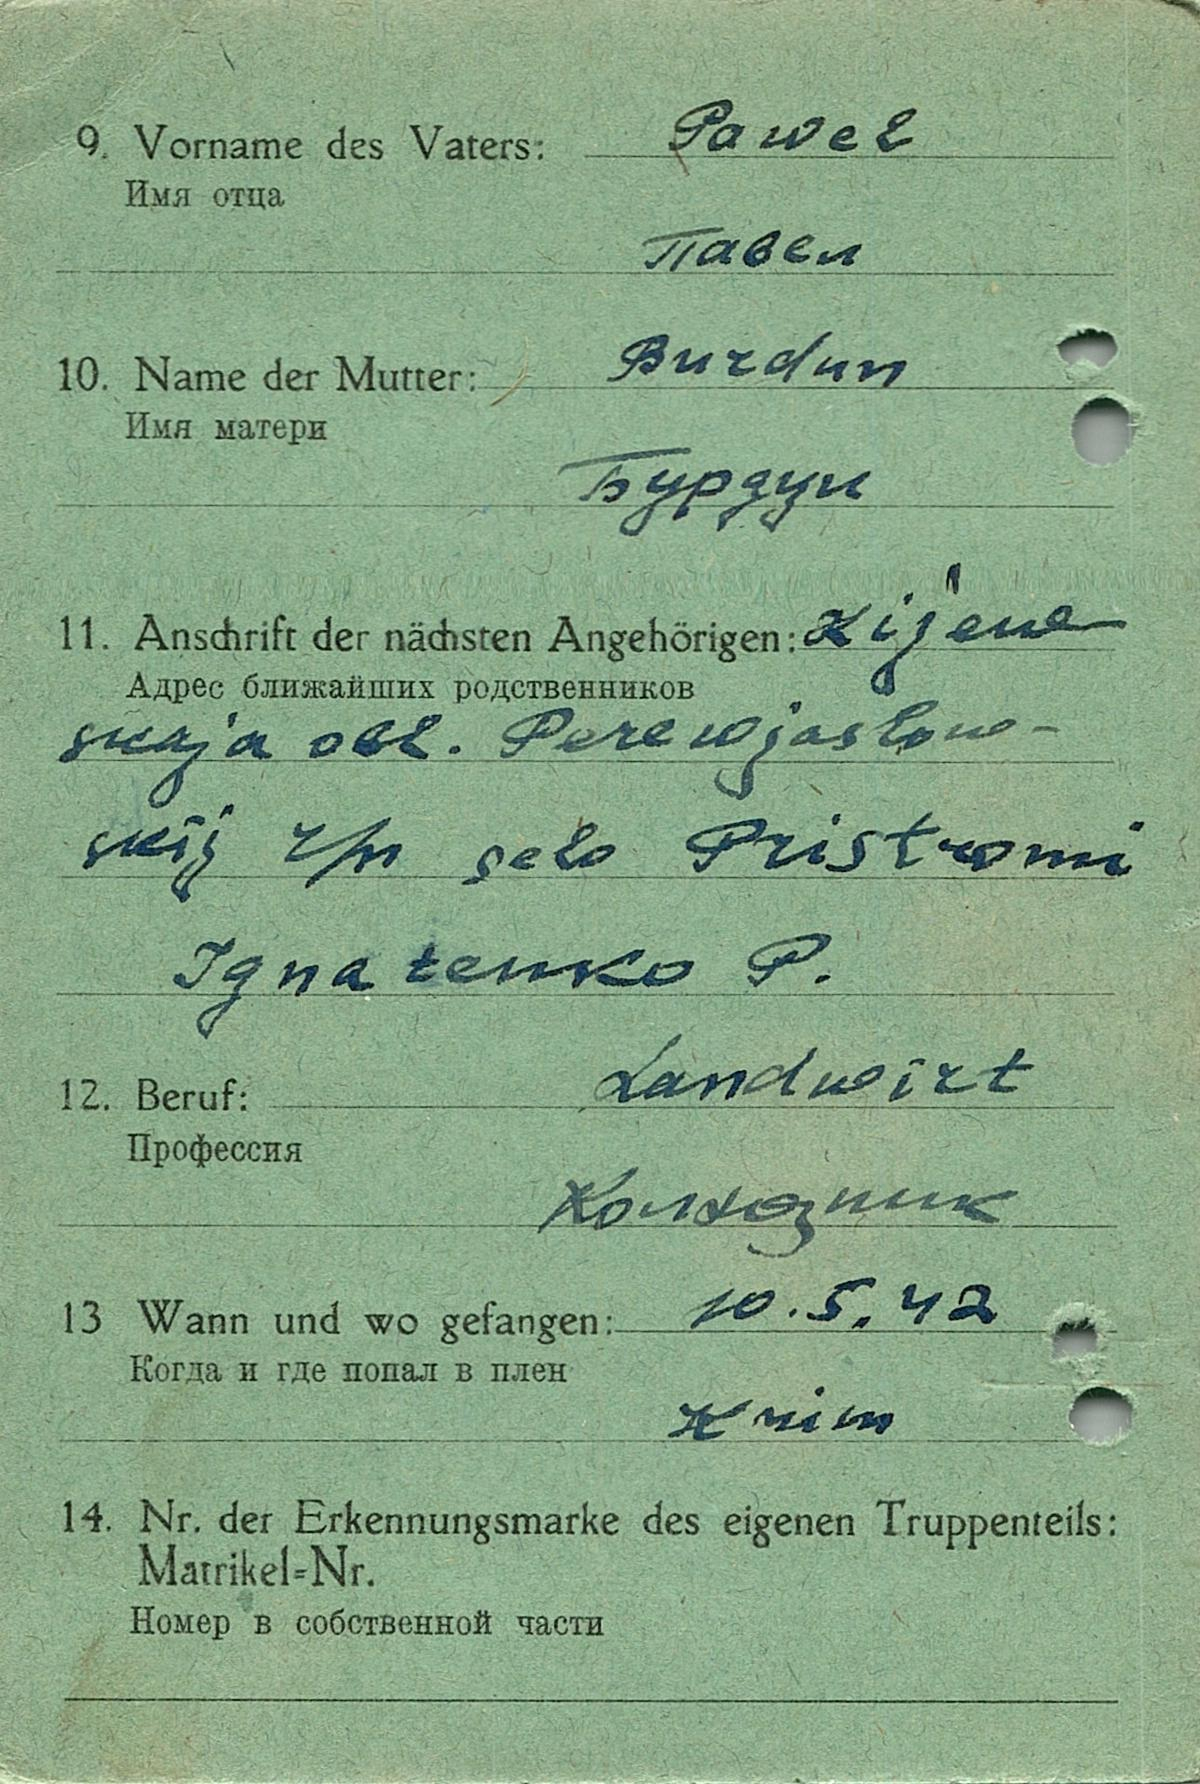 9. Vorname des Vaters: Pawel
Имя отца
Павел
10. Name der Mutter: Burdun
Имя матери
Бурдун
11. Anschrift der nächsten Angehörigen: Kijew
Адрес ближайших родственников
skaja obl. Perewjaslow-
skij r/n selo Pristromi
Ignatenko P.
12. Beruf: Landwirt
Профессия
Колхозник
13 Wann und wo gefangen: 10.5.42
Когда и где попал в плен
Krim
14. Nr. der Erkennungsmarke des eigenen Truppenteils:
Matrikel=Nr.
Номер в собственной части